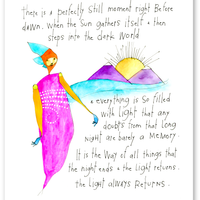 there is a perfectly still moment right before
dawn, when the sun gathers itself & then
steps into the dark world
& everything is so filled
with light that any
doubts from that long
night are barely a memory.
It is the Way of all things that
the night ends & the light returns.
The light always returns.